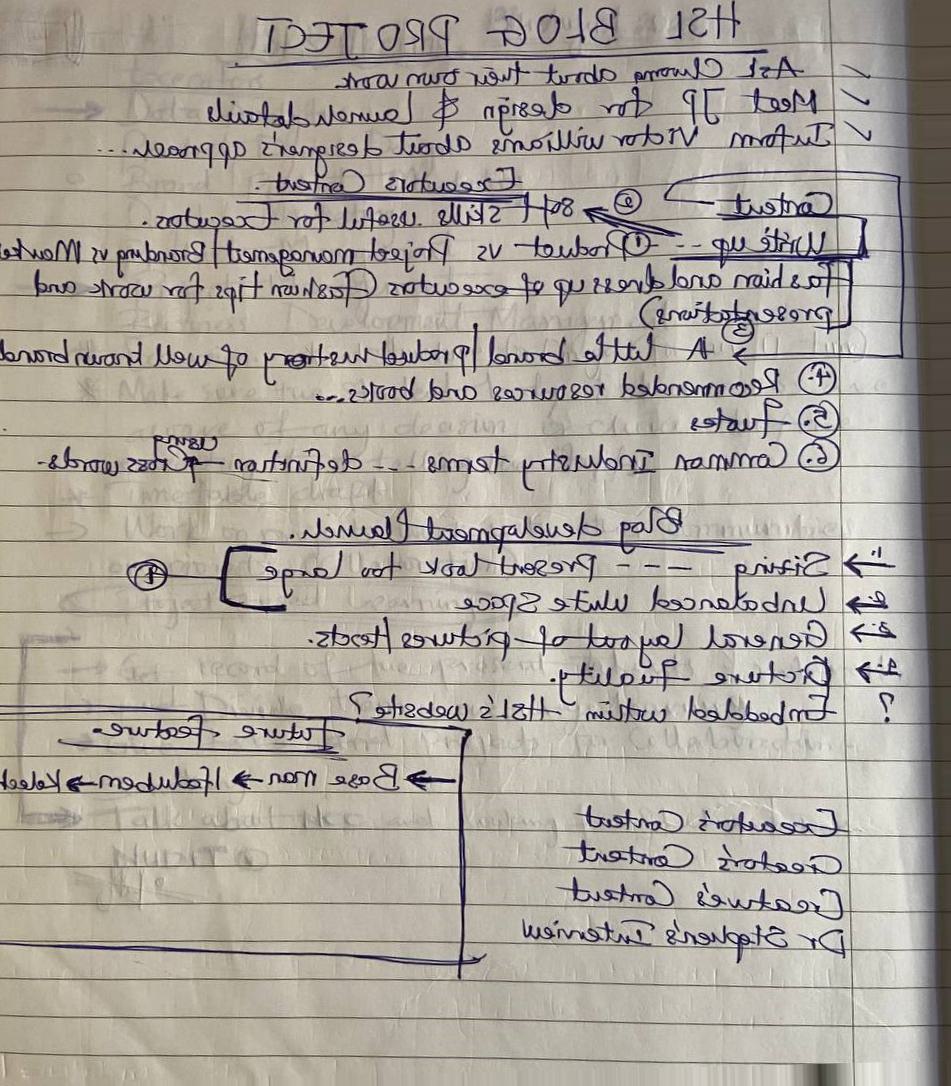 HSI BLOG PROJECT
✓ Ask Chuoma about their own work
✓ Meet JB for design & launch details
✓ Inform Victor Williams about designer's approach...
Executors Content.
Content
② soft skills useful for Executors.
Write up -- ① Product vs Project management/Branding vs
Fashion and dress up of executors (Fashion tips for work and
presentations)
③ A little brand/product history of well known brand
④. Recommended resources and books...
⑤. Quotes
⑥. Common Industry terms --- definition using Cross words-
Blog development Layout.
1. → Sizing ---- Present look too large
2. → Unbalanced White Space
3. → General layout of pictures/texts.
4. → Picture Quality.
? Embedded within HSI's website?
Future feature-
→ Base
Executors' Content
Creators' Content
Creature's Content
Dr Stephen's Interview